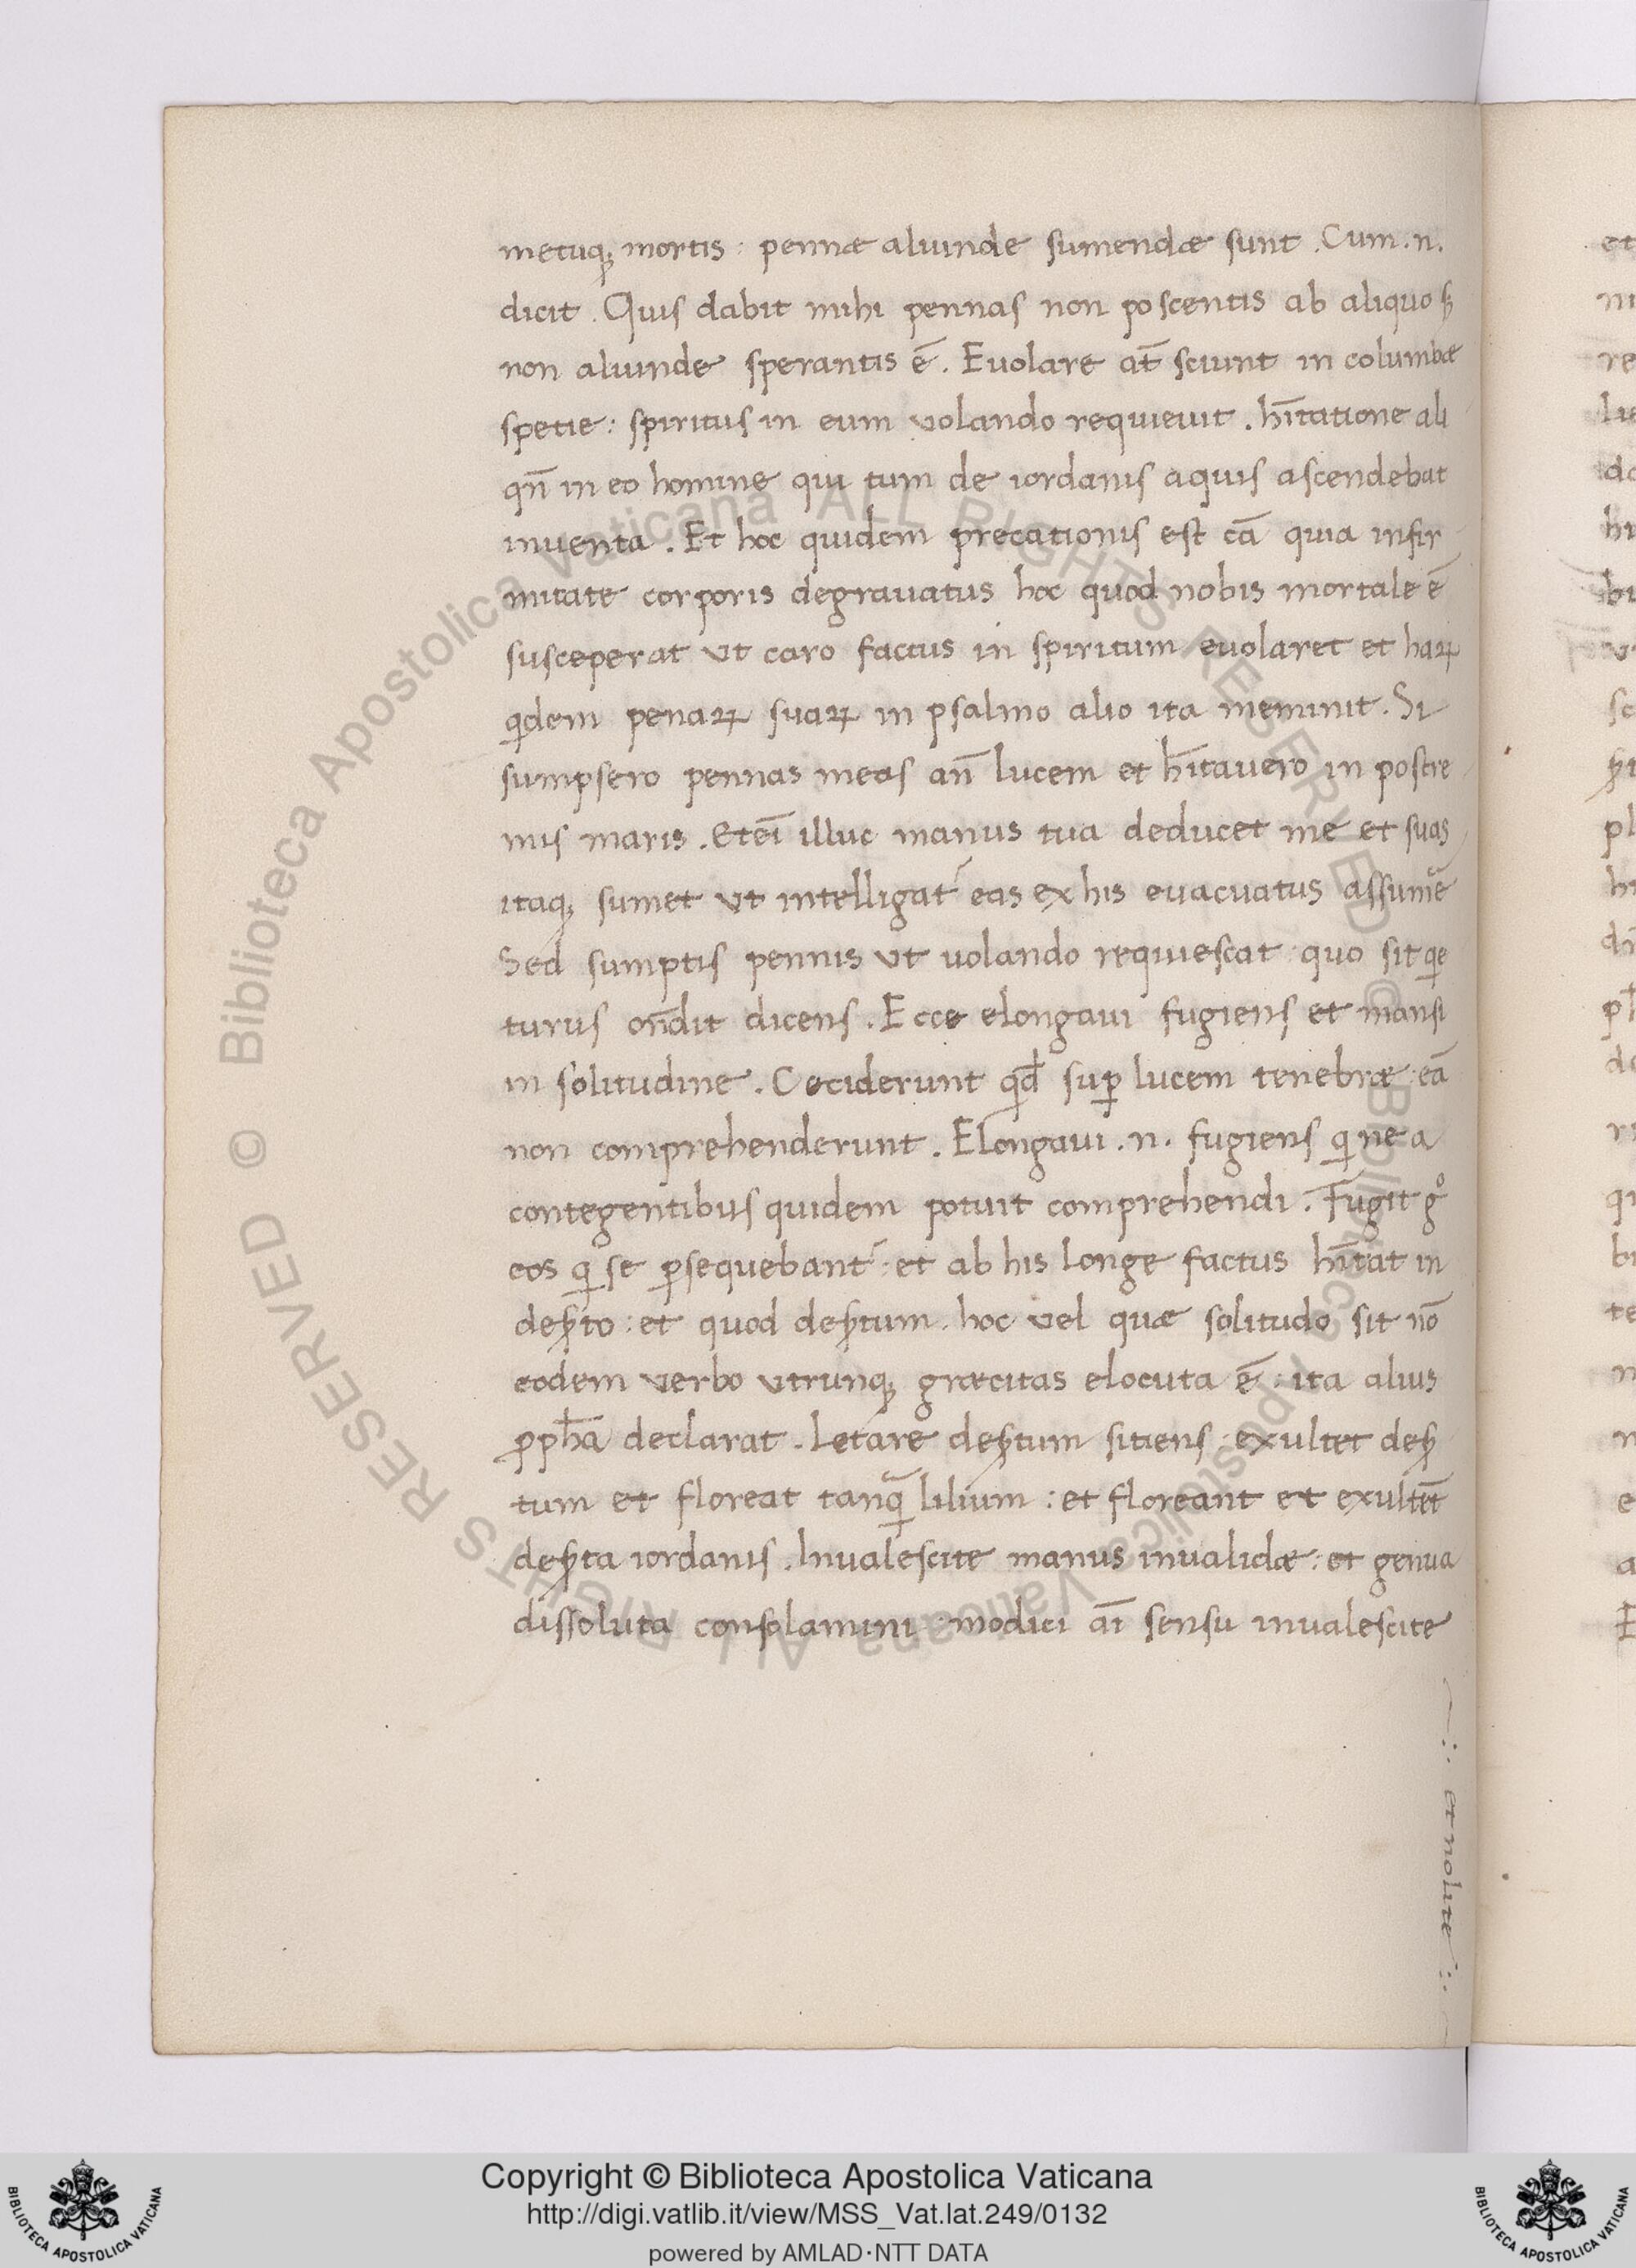 metuqꝫ mortis : pennæ aliunde sumendæ sunt . Cum . n .
dicit . Quis dabit mihi pennas non poscentis ab aliquo sꝫ
non aliunde sperantis ē . Euolare at̄ sciunt in columbæ
spetie : spiritus in eum volando requieuit . hītatione ali
qn̄ in eo homine qui tum de iordanis aquis ascendebat
inuenta . Et hoc quidem precationis est cā quia infir
mitate corporis degrauatus hoc quod nobis mortale ē
susceperat vt caro factus in spiritum euolaret et haꝝ
qͥdem penaꝝ suaꝝ in psalmo alio ita meminit . Si
sumpsero pennas meas an̄ lucem et hītauero in postre
mis maris . Etei̅ illuc manus tua deducet me et suas
itaqꝫ sumet vt intelligat᷑ eas ex his euacuatus assume᷑
Sed sumptis pennis vt uolando requiescat quo sit qͥe
turus on̄dit dicens . Ecce elongaui fugiens et mansi
in solitudine . Ceciderunt qͥd̄ suꝑ lucem tenebræ : eā
non comprehenderunt . Elongaui . n . fugiens qͥ ne a
contegentibus quidem potuit comprehendi . Fugit gͦ
eos qͥ se ꝑsequebant᷑ : et ab his longe factus hītat in
deẜto : et quod deẜtum . hoc vel quæ solitudo sit nō
eodem verbo vtrunqꝫ græcitas elocuta ē : ita alius
ꝓph̄a declarat . Letare deẜtum sitiens : exultet deẜ
tum et floreat tanqͣ̄ lilium : et floreant et exultet̄
deẜta iordanis . Inualescite manus inualidæ : et genua
dissoluta consolamini : modici ai̅ sensu inualescite
et nolite
Copyright © Biblioteca Apostolica Vaticana
http://digi.vatlib.it/view/MSS_Vat.lat.249/0132
powered by AMLAD·NTT DATA
BIBLIOTECA APOSTOLICA VATICANA
BIBLIOTECA APOSTOLICA VATICANA
© Biblioteca Apostolica Vaticana ALL RIGHTS RESERVED © Biblioteca Apostolica Vaticana ALL RIGHTS RESERVED